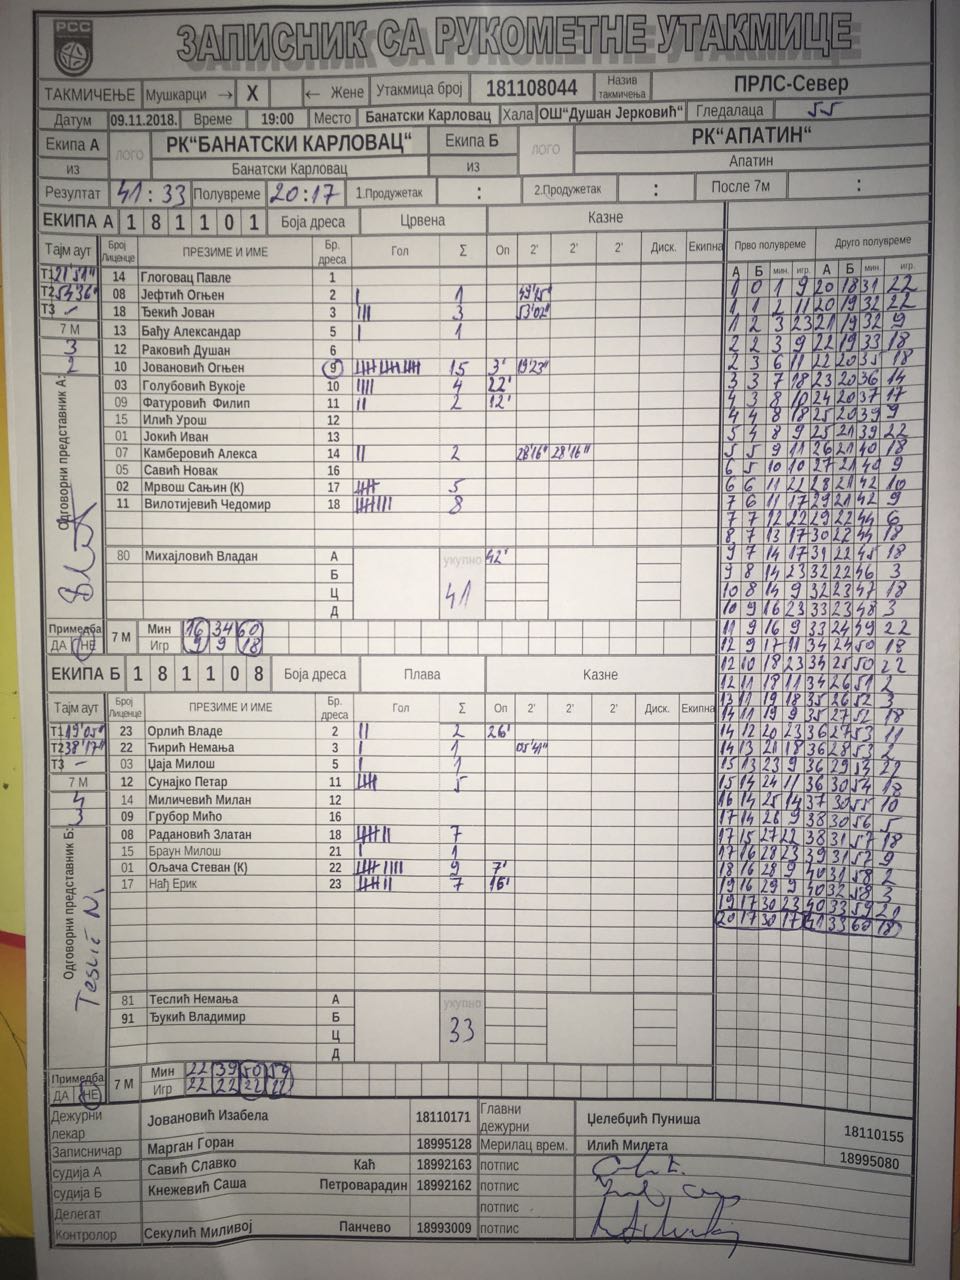 РСС
ЗАПИСНИК СА РУКОМЕТНЕ УТАКМИЦЕ
ТАКМИЧЕЊЕ Мушкарци → X ← Жене Утакмица број 181108044 Назив такмичења ПРЛС-Север
Датум 09.11.2018. Време 19:00 Место Банатски Карловац Хала ОШ"Душан Јерковић" Гледалаца 55
Екипа А ЛОГО РК"БАНАТСКИ КАРЛОВАЦ" Екипа Б ЛОГО РК"АПАТИН"
из Банатски Карловац из Апатин
Резултат 41:33 Полувреме 20:17 1.Продужетак : 2.Продужетак : После 7м :
ЕКИПА А 1 8 1 1 0 1 Боја дреса Црвена Казне
Прво полувреме Друго полувреме
Тајм аут Број Лиценце ПРЕЗИМЕ И ИМЕ Бр. дреса Гол Σ Оп 2' 2' 2' Диск. Екипна
А Б мин. игр. А Б мин. игр.
Т1 21'51" 14 Глоговац Павле 1
Т2 54'36" 08 Јефтић Огњен 2 I 1 49'15"
Т3 – 18 Ђекић Јован 3 III 3 53'02"
7 М 13 Бађу Александар 5 I 1
3 12 Раковић Душан 6
2 10 Јовановић Огњен 9 15 3' 19'23"
03 Голубовић Вукоје 10 IIII 4 22'
09 Фатуровић Филип 11 II 2 12'
15 Илић Урош 12
01 Јокић Иван 13
07 Камберовић Алекса 14 II 2 28'16" 28'16"
05 Савић Новак 16
02 Мрвош Сањин (К) 17 5
11 Вилотијевић Чедомир 18 8
Одговорни представник А:
80 Михајловић Владан А укупно 42'
Б
Ц 41
Д
Примедба ДА НЕ 7 М Мин 16 34 60
Игр 9 9 18
ЕКИПА Б 1 8 1 1 0 8 Боја дреса Плава Казне
Тајм аут Број Лиценце ПРЕЗИМЕ И ИМЕ Бр. дреса Гол Σ Оп 2' 2' 2' Диск. Екипна
Т1 19'05" 23 Орлић Владе 2 II 2 26'
Т2 38'17" 22 Ћирић Немања 3 I 1 05'41"
Т3 – 03 Џаја Милош 5 I 1
7 М 12 Сунајко Петар 11 5
4 14 Миличевић Милан 12
3 09 Грубор Мићо 16
08 Радановић Златан 18 7
15 Браун Милош 21 I 1
01 Ољача Стеван (К) 22 9 7'
17 Нађ Ерик 23 7 16'
Одговорни представник Б:
Teslić N.
81 Теслић Немања А укупно
91 Ђукић Владимир Б 33
Ц
Д
Примедба ДА НЕ 7 М Мин 22 39 50 54
Игр 22 22 22 22
1 0 1 9 20 18 31 22
1 1 2 11 20 19 32 22
1 2 3 23 21 19 32 9
2 2 3 9 22 19 33 18
2 3 6 11 22 20 35 18
3 3 7 18 23 20 36 14
4 3 8 10 24 20 37 17
4 4 8 18 25 20 39 9
5 4 8 9 25 21 39 22
5 5 9 11 26 21 40 18
6 5 10 10 27 21 40 9
6 6 11 22 28 21 42 10
7 6 11 17 29 21 42 9
7 7 12 22 29 22 44 6
8 7 13 17 30 22 44 18
9 7 14 17 31 22 45 18
9 8 14 23 32 22 46 3
10 8 14 9 32 23 47 18
10 9 16 23 33 23 48 3
11 9 16 9 33 24 49 22
12 9 17 11 34 24 50 18
12 10 18 23 34 25 50 22
12 11 18 11 34 26 51 2
13 11 19 18 35 26 52 3
14 11 19 9 35 27 52 18
14 12 20 23 36 27 53 11
14 13 21 18 36 28 53 2
15 13 23 9 36 29 54 22
15 14 24 11 36 30 54 18
16 14 25 14 37 30 55 10
17 14 26 9 38 30 56 5
17 15 27 22 38 31 57 18
17 16 28 23 39 31 57 9
18 16 28 9 40 31 58 2
19 16 29 9 40 32 58 3
19 17 30 23 40 33 59 21
20 17 30 17 41 33 60 18
Дежурни лекар Јовановић Изабела 18110171 Главни дежурни Џелебџић Пуниша 18110155
Записничар Марган Горан 18995128 Мерилац врем. Илић Милета 18995080
судија А Савић Славко Каћ 18992163 потпис
судија Б Кнежевић Саша Петроварадин 18992162 потпис
Делегат потпис
Контролор Секулић Миливој Панчево 18993009 потпис